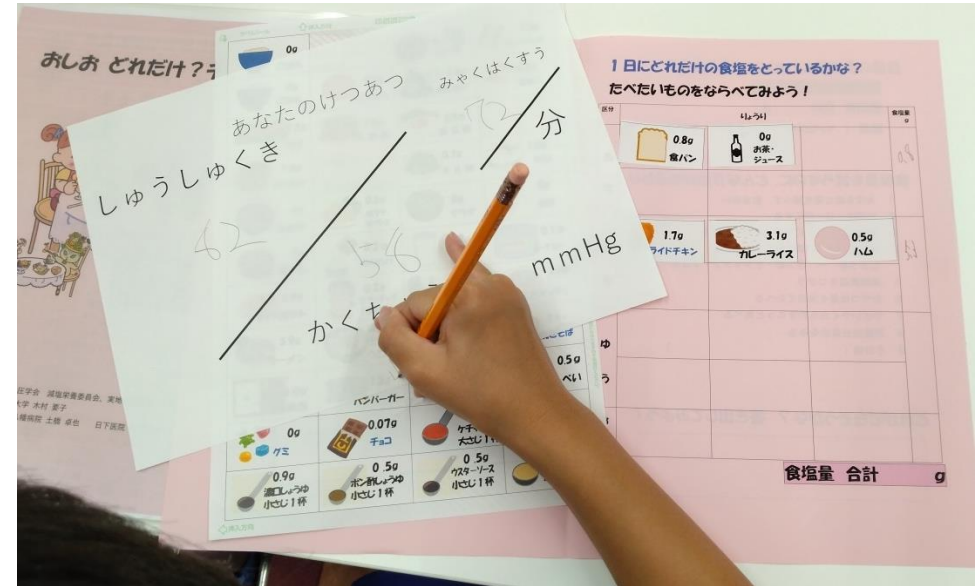 おしお どれだけ?
0g
あなたのけつあつ
みゃくはくすう
72
分
しゅうしゅくき
58
mmHg
かくち
ハンバーガー
0.5g
0g
グミ
0.07g
チョコ
大さじ1杯
0.9g
濃口しょうゆ
小さじ1杯
0.5g
ポン酢しょうゆ
小さじ1杯
0.5g
ウスターソース
小さじ1杯
1日にどれだけの食塩をとっているかな?
たべたいものをならべてみよう!
区分
りょうり
食塩量
g
0.8g
食パン
0g
お茶・
ジュース
0.8
1.7g
ライドチキン
3.1g
カレーライス
0.5g
ハム
食塩量 合計 g